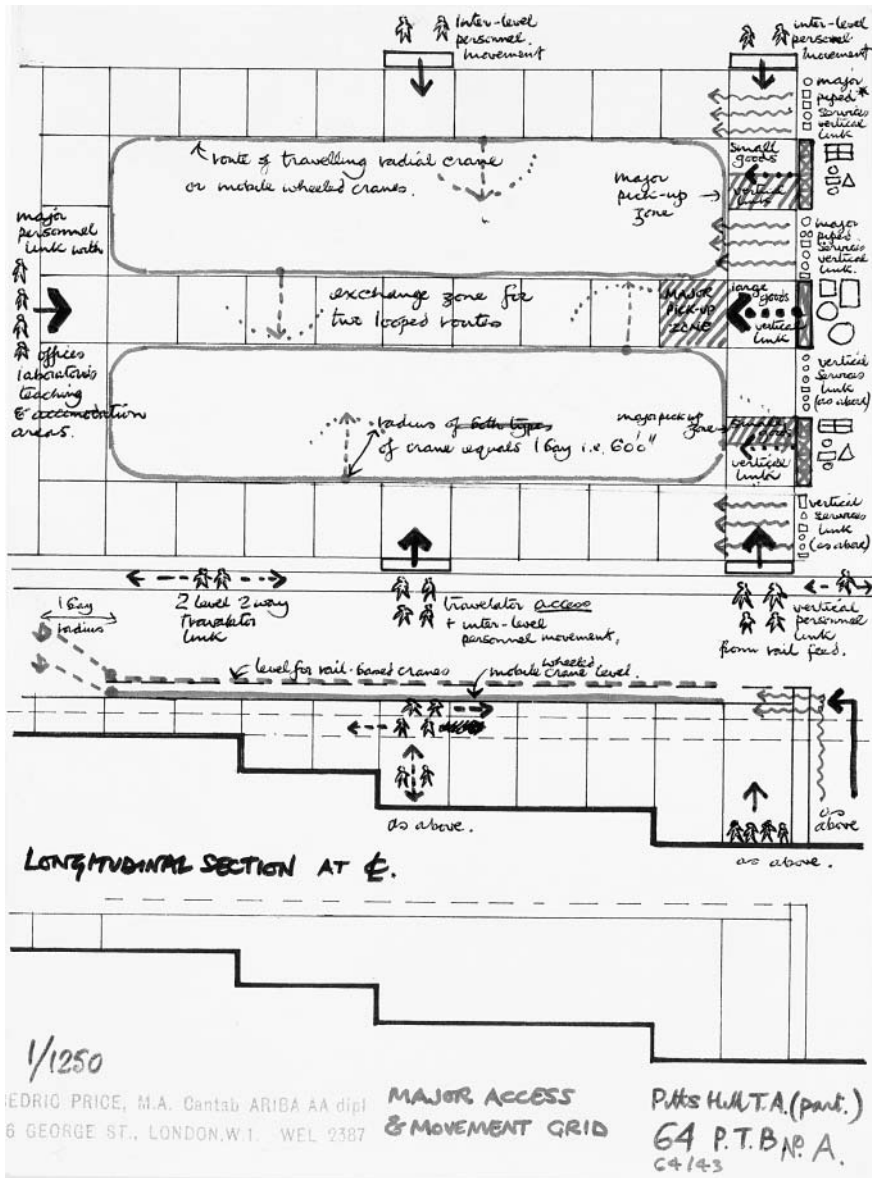 inter-level
personnel
movement
inter-level
personnel
movement
major
piped *
services
vertical
link
route of travelling radial crane
or mobile wheeled cranes.
major
pick-up
zone
small
goods
vertical
link
major
personnel
link with
offices
laboratories
teaching
& accomodation
areas.
major
piped
services
vertical
link.
exchange zone for
two looped routes
MAJOR
PICK-UP
ZONE
large
goods
vertical
link
vertical
services
link
(as above)
radius of both types
of crane equals 1 bay i.e. 60'0"
major pick up
zone
small
goods
vertical
link
vertical
services
link
(as above)
1 bay
radius
2 level 2 way
travelator
link
travelator access
+ inter-level
personnel movement,
vertical
personnel
link
from rail feed.
level for rail-based cranes
wheeled
mobile crane level.
as above.
as above.
as
above
LONGITUDINAL SECTION AT ℄.
1/1250
CEDRIC PRICE, M.A. Cantab ARIBA AA dipl
6 GEORGE ST., LONDON.W.1. WEL 2387
MAJOR ACCESS
& MOVEMENT GRID
Pitts Hill T.A. (part.)
64 P.T.B No. A.
64/43